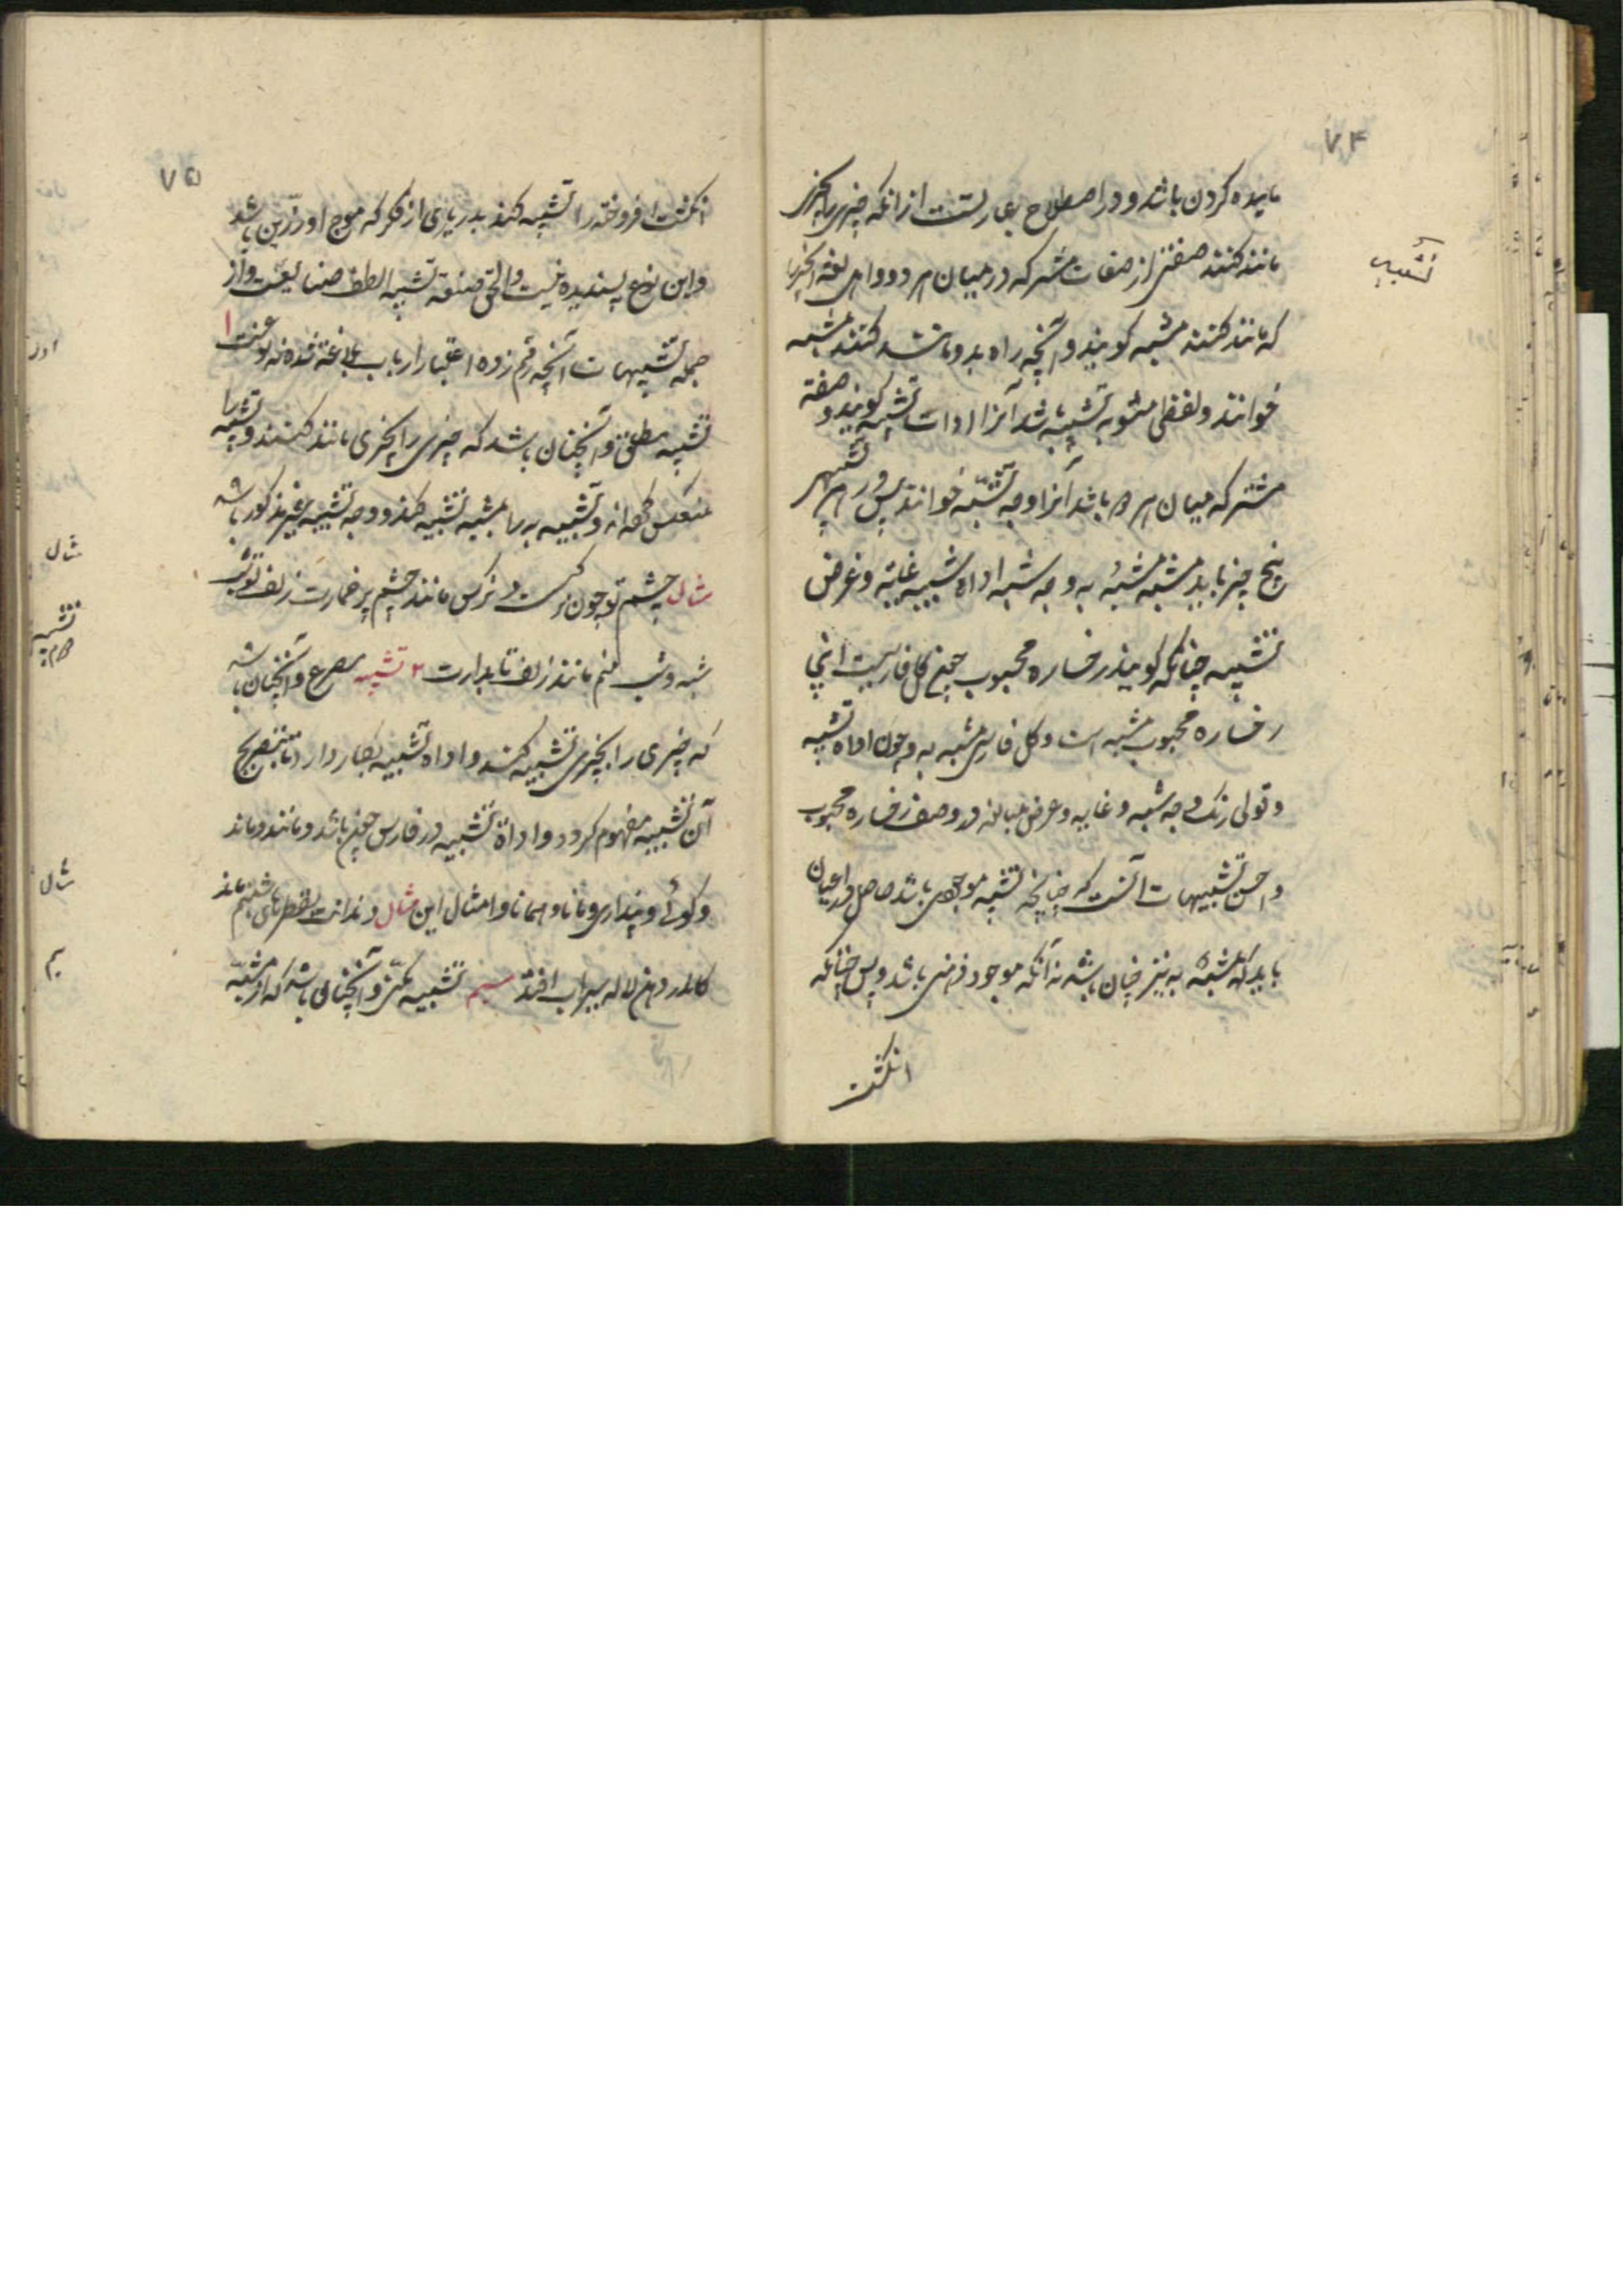 ۷۴
تشبیه
مانیده کردن باشد و در اصطلاح عبارتست از انکه چیزی را بچیزی
مانند کنند صفتی از صفات مشترکه در میان هر دو و اهل لغة انچیز را
که مانند کنند مشبه کویند و آنچه را بدو مانند کنند مشبه به
خوانند و لفظی که تشبیه باشد آنرا ادات تشبیه کویند و صفة
مشترکه میان هر دو باشد آنرا وجه تشبیه خوانند پس در هر تشبیهی
پنج چیز باید مشبه مشبه به وجه شبه اداه تشبیه و غرض
تشبیه چنانکه کویند رخساره محبوب چون کل فارسیست اینجا
رخساره محبوب مشبه است و کل فارسی مشبه به و چون اداه تشبیه
و رنک وجه شبه و غایه و غرض مبالغه در وصف رخساره محبوب
و احسن تشبیهات آنست که چنانچه مشبه موجودی باشد حاصل در اعیان
باید که مشبه به نیز چنان باشد نه آنکه موجود فرضی باشد و بس چنانکه
انکشت
۷۵
انکشت افروخته را تشبیه کنند بدریای از مشک که موج او زرین باشد
و این نوع پسندیده نیست و الحق صنعة تشبیه الطف صنایعست و از
جمله تشبیهات آنچه رقم زده اعتبار ارباب بلاغة شده نه نوعست ۱
تشبیه مطلق و آنچنان باشد که چیزی را بچیزی مانند کنند و تشبیه را
منعکس کردانند و مشبه به را بمشبه تشبیه کنند و وجه تشبیه غیر مذکور باشد
مثال چشم تو چون نرکس است و نرکس مانند چشم پر خمارت زلف تو
شبه و شب مانند زلف تابدارت ۲ تشبیه مصرح و آنچنان باشد
که چیزی را بچیزی تشبیه کنند و اداه تشبیه بکار دارد تا بتصریح
آن تشبیه مفهوم کردد و اداة تشبیه در فارسی چون باشد و مانند و ماند
و کوئی و پنداری و مانا و همانا و امثال این مثال دندانت بقطرهای شبنم ماند
کاندر دهن لاله سیراب افتد سیم تشبیه مکنی و آنچنان باشد که از مشبه
مثال
تشبیه
مثال
سیم